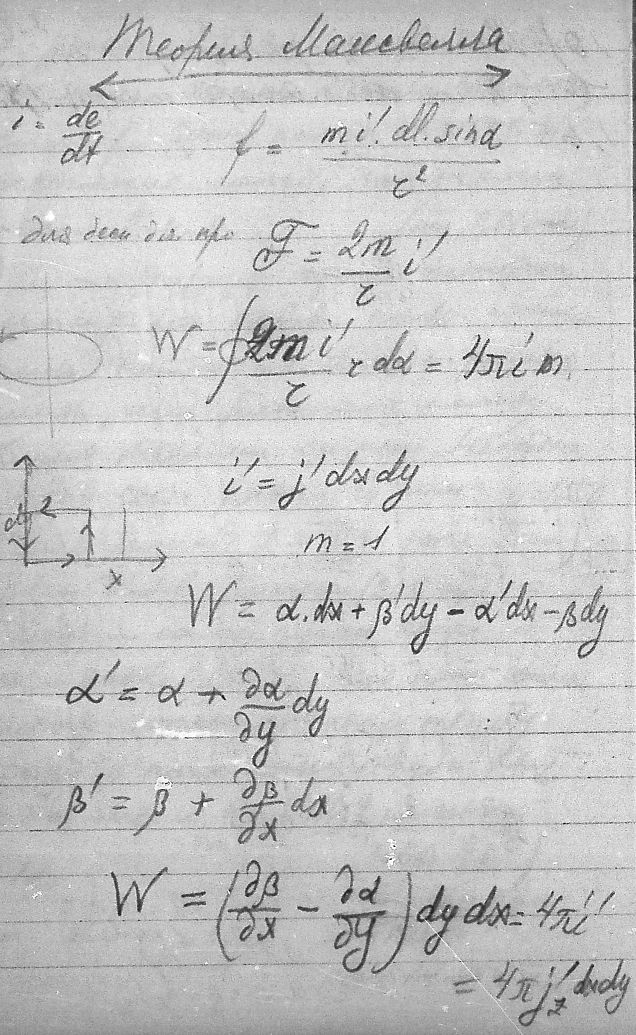 Теория Максвелла
i' = de/dt
f = m i' dl sinα / r²
для беск дл про
F = 2m/r i'
W = ∫ 2m i'/r r dα = 4πi'm
i' = j' dx dy
m = 1
x
W = α.dx + β'dy - α'dx - βdy
α' = α + ∂α/∂y dy
β' = β + ∂β/∂x dx
W = (∂β/∂x - ∂α/∂y) dy dx = 4πi'
= 4πj'z dx dy